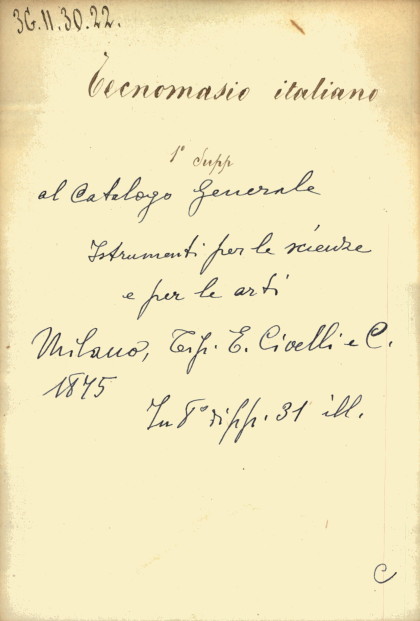 3G.11.30.22.
Tecnomasio italiano
1° Supp
al Catalogo Generale
Istrumenti per le scienze
e per le arti
Milano, Tip. E. Civelli e C.
1875
In 8° di pp. 31 ill.
C